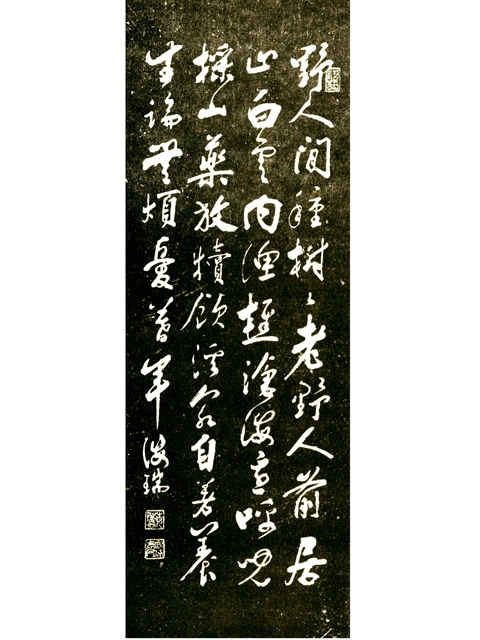 野人閒種樹々老野人前居
止白雲内漁樵滄海邊呼兒
採山藥放犢飲溪泉自著養
生論無煩憂暮年 海瑞